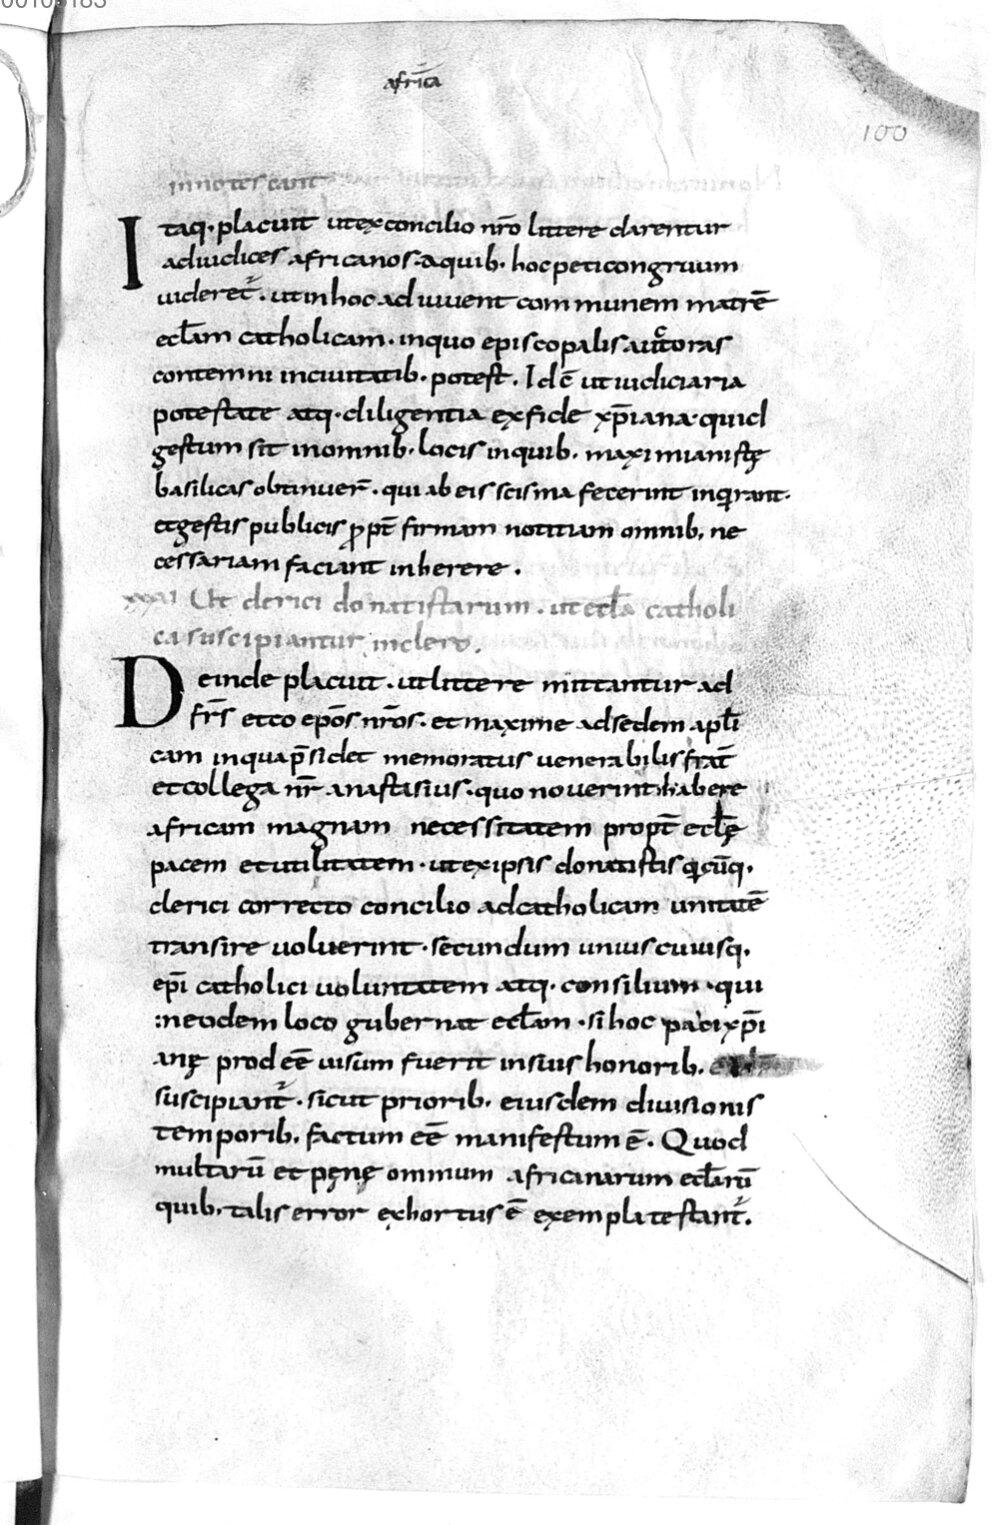 africā
100
innotescant
Itaq· placuit utexconcilio nr̄o littere darentur
adiudices africanos· aquib· hoc peticongruum
uideret᷑· utinhoc adiuuent communem matrē
eccl̄am catholicam· inquo episcopalis auctoritas
contemni inciuitatib· potest· Idē utiudiciaria
potestate atq· diligentia exfide xp̄iana· quid
gestum sit inomnib· locis inquib· maximianistę
basilicas obtinuer̄· qui abeis scisma fecerint inqirant·
etgestis publicis ꝓpt̄ firmam notitiam omnib· ne
cessariam faciant inherere·
xxxi Ut clerici donatistarum· ut eccl̄a catholi
ca suscipiantur inclero·
Deinde placuit· utlittere mittantur ad
fr̄s etco ep̄os nr̄os· et maxime adsedem apl̄i
cam inqua p̄sidet memoratus uenerabilis frat̄
etcollega nr̄ anastasius· quo nouerint habere
africam magnam necessitatem propt̄ eccl̄ę
pacem etutilitatem· utexipsis donatistis qicūq·
clerici correcto concilio adcatholicam unitatē
transire uoluerint· secundum uniuscuiusq·
ep̄i catholici uoluntatem atq· consilium· qui
ineodem loco gubernat eccl̄am· sihoc paci xp̄i
anę prodeē uisum fuerit insuis honorib·
suscipiant᷑· sicut priorib· eiusdem diuisionis
temporib· factum eē manifestum ē· Quod
multarū et pęnę omnium africanarum eccl̄arū
quib· talis error exhortus ē exempla testant᷑·